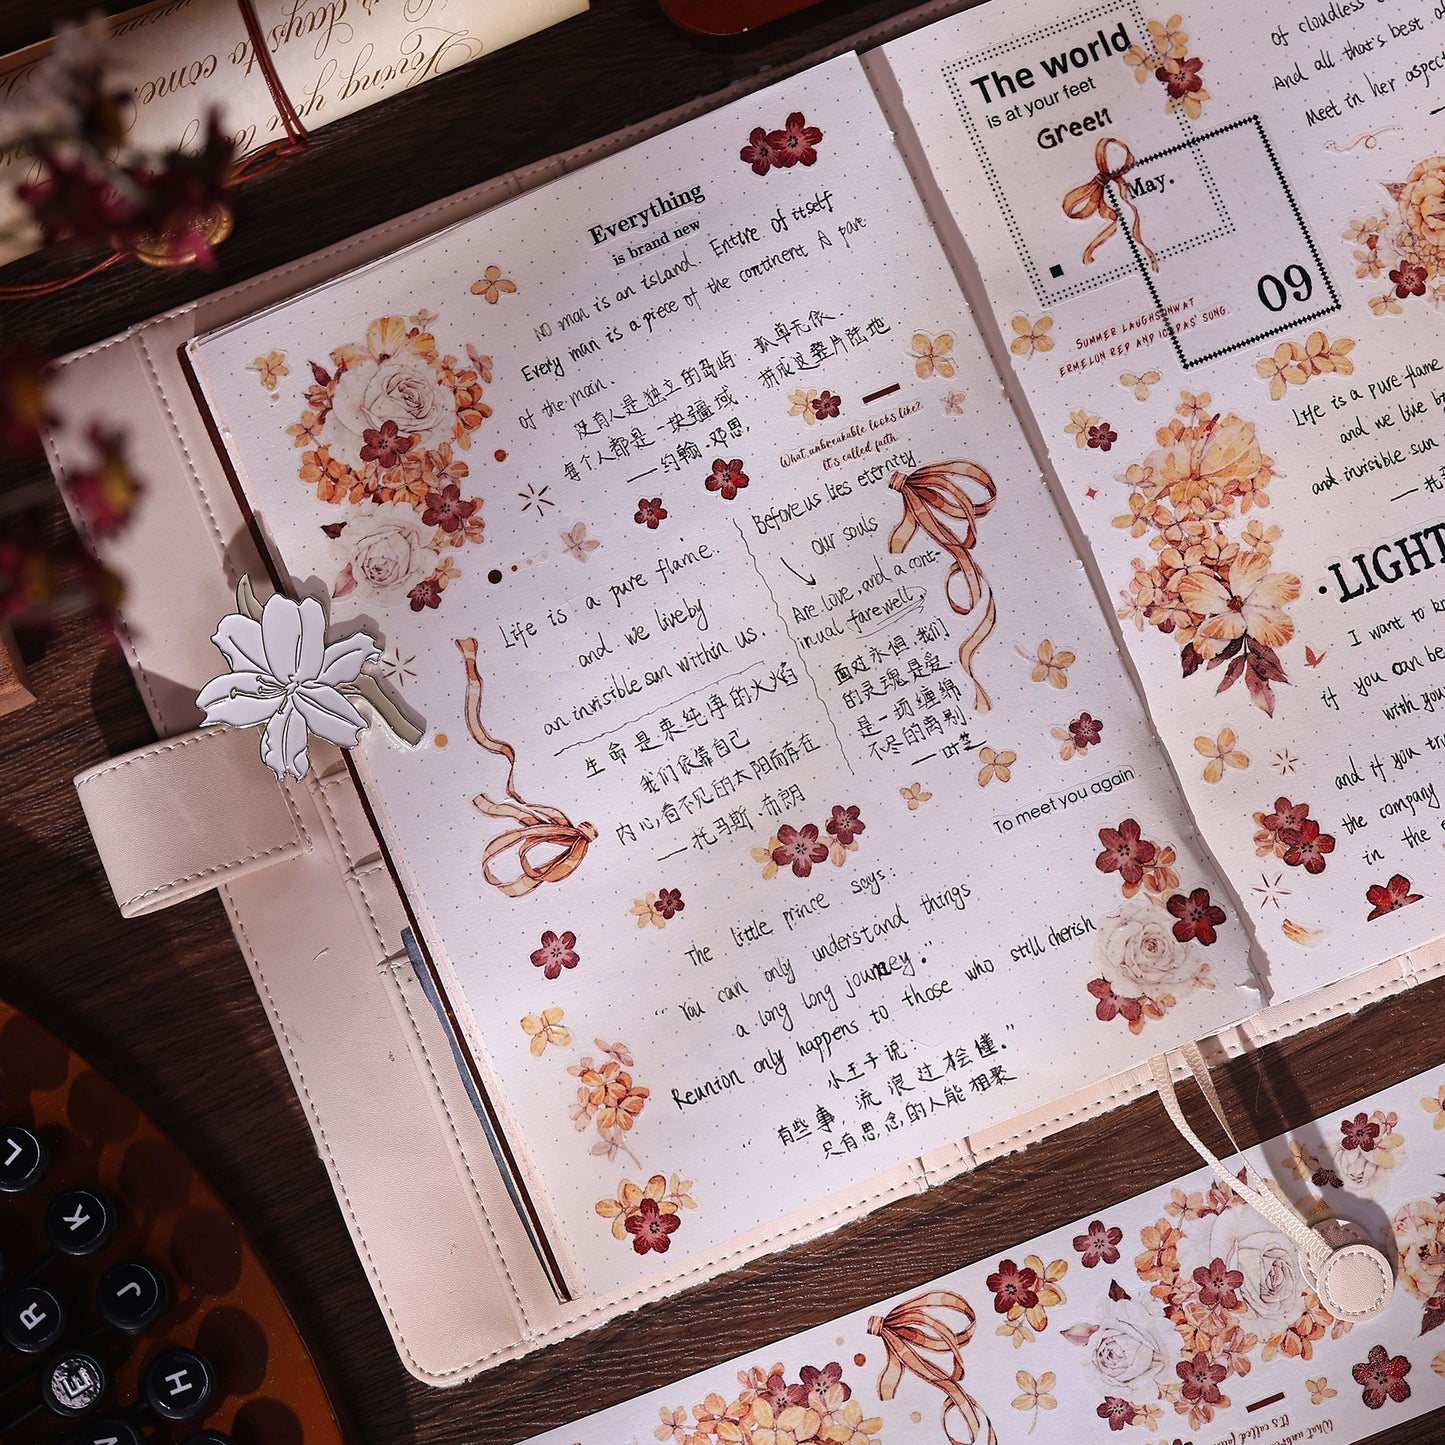 Loving you
days to come.
Everything
is brand new
No man is an island. Entire of itself
Every man is a piece of the continent A part
of the main.
没有人是独立的岛屿. 孤单无依.
每个人都是一块疆域. 拼成这整片陆地
——约翰·邓恩,
What unbreakable looks like?
It's called faith
Life is a pure flame.
and we live by
an invisible sun within us.
生命是束纯净的火焰
我们依靠自己
内心,看不见的太阳而存在
——托马斯·布朗
Before us lies eternity
our souls
Are love, and a cont-
inual farewell,
面对永恒,我们
的灵魂是爱.
是一场缠绵
不尽的离别.
—叶芝
To meet you again
The little prince says:
"You can only understand things
a long long journey."
Reunion only happens to those who still cherish
小王子说:
"有些事, 流浪过桧懂."
只有思念的人能相聚
The world
is at your feet
Green
May.
09
Summer laughs
Ermelun red and
sung.
of cloudless
And all that's best of
Meet in her aspect
Life is a pure flame
and we live by
and invisible sun
——托
·LIGHT
I want to
if you can be
with you
and if you
the company
in the
L
K
J
R
E
H
What
It's called